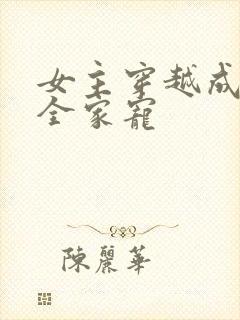 女主穿越成
全家寵
陳麗華